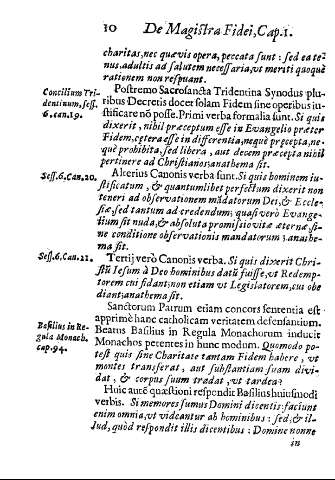 10 De Magistra Fidei, Cap. 1.
charitas, nec quævis opera, peccata sunt: sed ea te-
nus, adultis ad salutem necessaria, vt meriti quoque
rationem non respuant.
Concilium Tri-
dentinum, sess.
6. can. 19.
Postremo Sacrosancta Tridentina Synodus plu-
ribus Decretis docet solam Fidem sine operibus iu-
stificare nō posse. Primi verba formalia sunt. Si quis
dixerit, nihil præceptum esse in Euangelio præter
Fidem, cetera esse in differentia, nequè præcepta, ne-
què prohibita, sed libera, aut decem præcepta nihil
pertinere ad Christianos; anathema sit.
Sess. 6. Can. 20.
Alterius Canonis verba sunt. Si quis hominem iu-
stificatum, & quantumlibet perfectum dixerit non
teneri ad obseruationem mādatorum Dei, & Eccle-
siæ, sed tantum ad credendum; quasi verò Euange-
lium sit nuda, & absoluta promissio vitæ æternæ si-
ne conditione obseruationis mandatorum; anathe-
ma sit.
Sess. 6. Can. 21.
Tertij verò Canonis verba. Si quis dixerit Chri-
stū Iesum à Deo hominibus datū fuisse, vt Redemp-
torem cui fidant; non etiam vt Legislatorem, cui obe
diant; anathema sit.
Sanctorum Patrum etiam concors sententia est
apprimè hanc catholicam veritatem defensantium.
Basilius in Re-
gula Monach.
cap. 94.
Beatus Basilius in Regula Monachorum inducit
Monachos petentes in hunc modum. Quomodo po-
test quis sine Charitate tantam Fidem habere, vt
montes transferat, aut substantiam suam diui-
dat, & corpus suum tradat, vt ardea?
Huic autē quæstioni respondit Basilius huiusmodi
verbis. Si memores sumus Domini dicentis: faciunt
enim omnia, vt videantur ab hominibus: sed, & il-
lud, quòd respondit illis dicentibus: Domine nonne
in